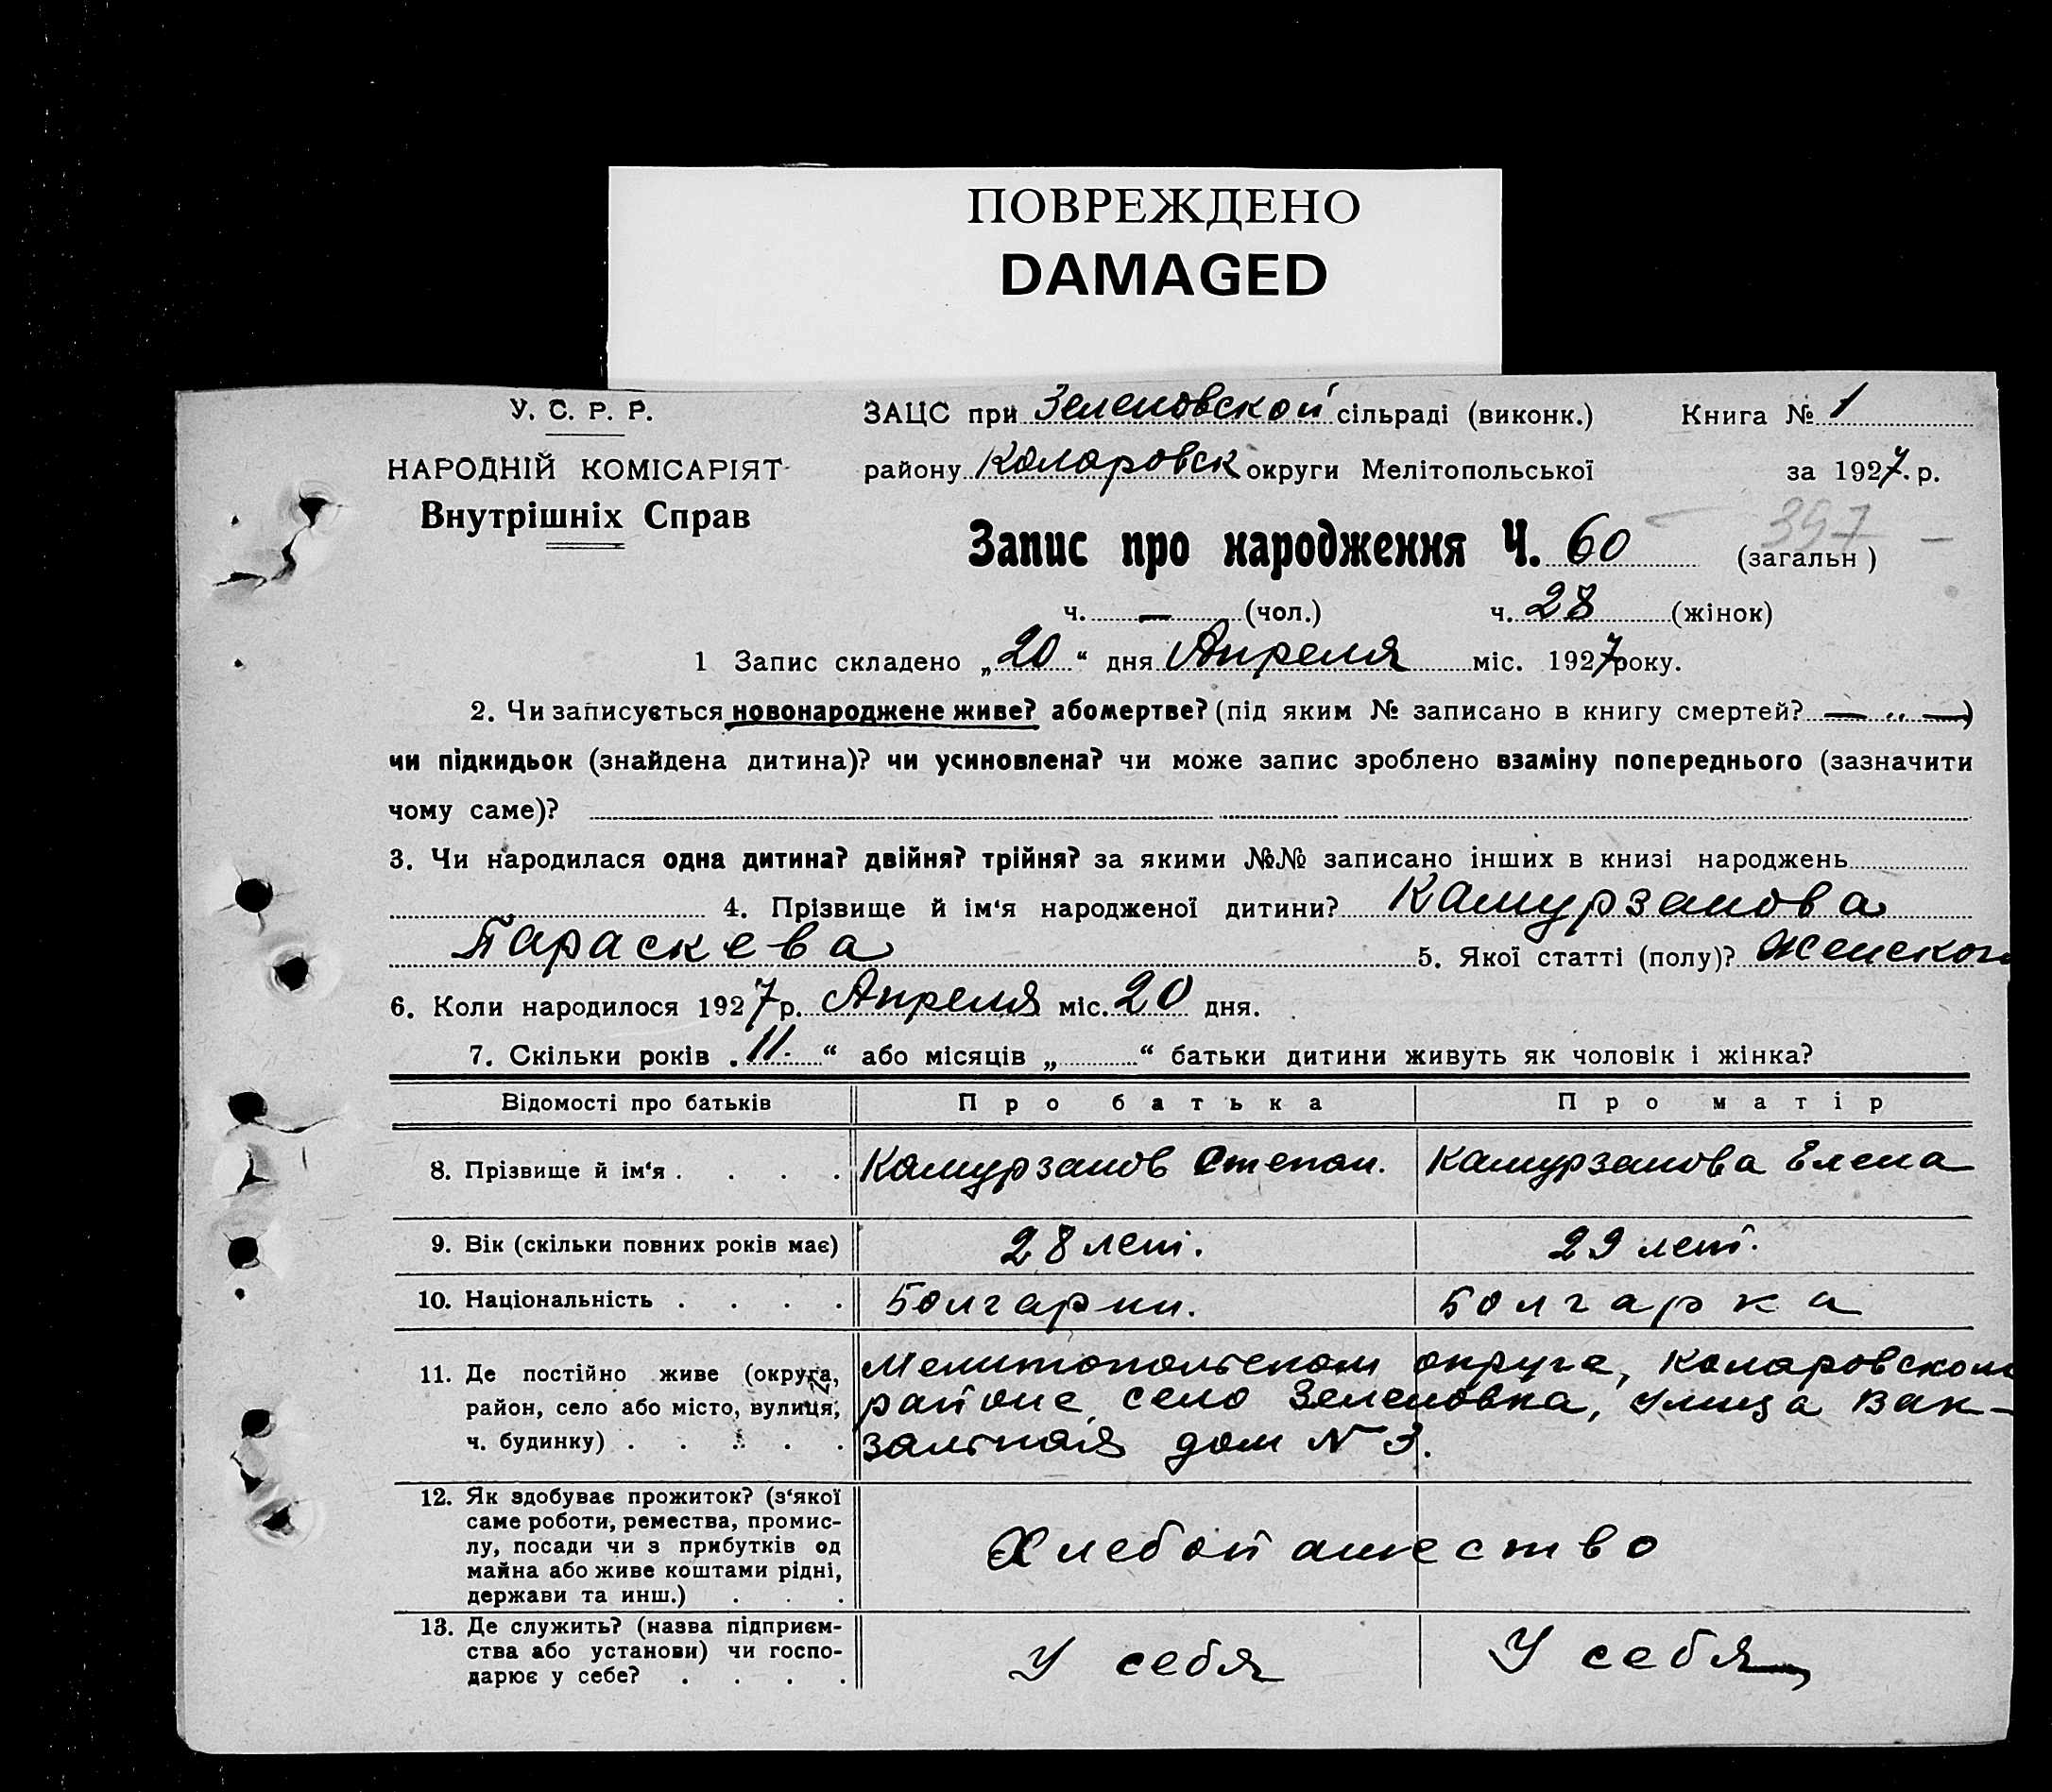 ПОВРЕЖДЕНО
DAMAGED
У. С. Р. Р.
НАРОДНІЙ КОМІСАРІЯТ
Внутрішніх Справ
ЗАЦС при Зеленовской сільраді (виконк.) Книга № 1
району Коларовск округи Мелітопольської за 1927 р.
397
Запис про народження Ч. 60 (загальн )
ч. — (чол.) ч. 28 (жінок)
1 Запис складено „20“ дня Апреля міс. 1927 року.
2. Чи записується новонароджене живе? або мертве? (під яким № записано в книгу смертей? — „ —)
чи підкидьок (знайдена дитина)? чи усиновлена? чи може запис зроблено взаміну попереднього (зазначити
чому саме)?
3. Чи народилася одна дитина? двійня? трійня? за якими №№ записано інших в книзі народжень
4. Прізвище й ім‘я народженої дитини? Камурзанова
Параскева 5. Якої статті (полу)? Женского
6. Коли народилося 1927 р. Апреля міс. 20 дня.
7. Скільки років „11.“ або місяців „ “ батьки дитини живуть як чоловік і жінка?
Відомості про батьків Про батька Про матір
8. Прізвище й ім‘я . . . . Камурзанов Степан. Камурзанова Елена
9. Вік (скільки повних років має) 28 лет. 29 лет.
10. Національність . . . . Болгарин. Болгарка
11. Де постійно живе (округа, район, село або місто, вулиця, ч. будинку) . . . . .
Мелитопольском округе, Коларовском
районе, село Зеленовка, улица Вак-
зальная дом N 3.
12. Як здобуває прожиток? (з‘якої
саме роботи, ремества, промис-
лу, посади чи з прибутків од
майна або живе коштами рідні,
держави та инш.) . . .
Хлебопашество
13. Де служить? (назва підприєм-
ства або установи) чи госпо-
дарює у себе? . . . .
У себя У себя